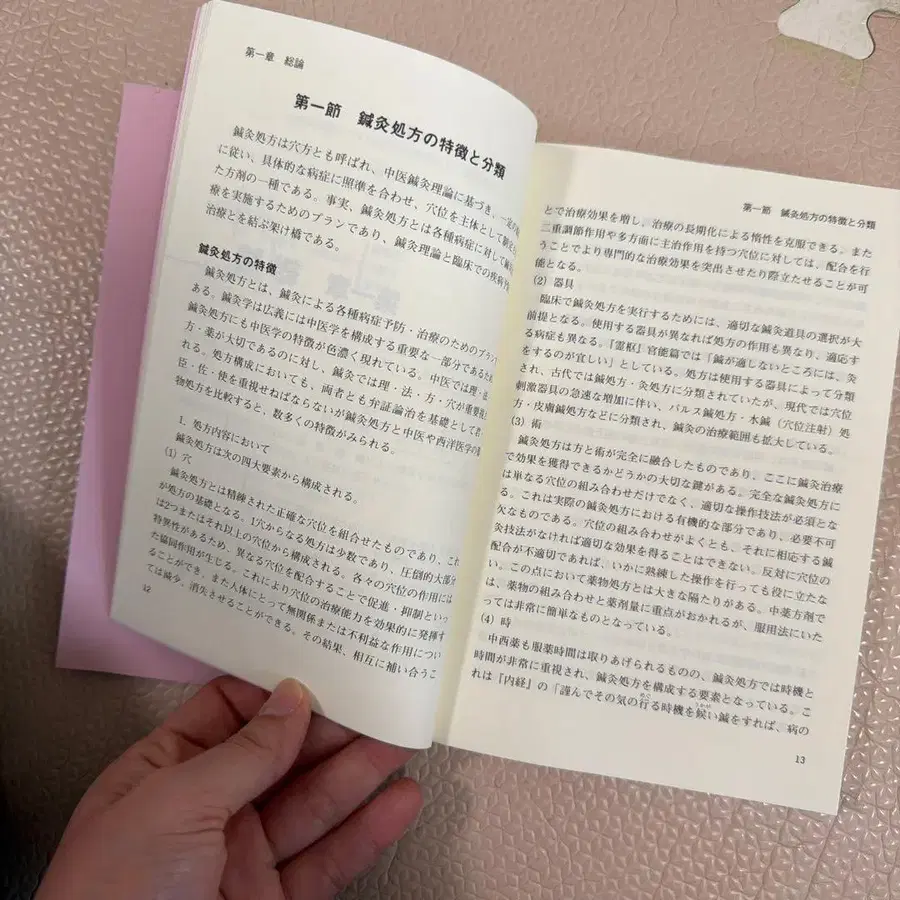 第一章 総論
第一節 鍼灸処方の特徴と分類
鍼灸処方は穴方とも呼ばれ、中医鍼灸理論に基づき、一定の
に従い、具体的な病症に照準を合わせ、穴位を主体として制定
た方剤の一種である。事実、鍼灸処方とは各種病症に対して鍼
療を実施するためのプランであり、鍼灸理論と臨床での疾病予
治療とを結ぶ架け橋である。
鍼灸処方の特徴
鍼灸処方とは、鍼灸による各種病症予防・治療のためのプラン
ある。鍼灸学は広義には中医学を構成する重要な一部分であるため
鍼灸処方にも中医学の特徴が色濃く現れている。中医では理・法
方・薬が大切であるのに対し、鍼灸では理・法・方・穴が重要視
れる。処方構成においても、両者とも弁証論治を基礎として君・
臣・佐・使を重視せねばならないが鍼灸処方と中医や西洋医学の薬
物処方を比較すると、数多くの特徴がみられる。
1. 処方内容において
鍼灸処方は次の四大要素から構成される。
(1) 穴
鍼灸処方とは精練された正確な穴位を組合せたものであり、これ
が処方の基礎となる。1穴からなる処方は少数であり、圧倒的大部分
は2つまたはそれ以上の穴位から構成される。各々の穴位の作用には
特異性があるため、異なる穴位を配合することで促進・抑制といっ
た協同作用が生じる。これにより穴位の治療能力を効果的に発揮す
ることができ、また人体にとって無関係または不利益な作用につい
ては減少、消失させることができる。その結果、相互に補い合うこ
12
第一節 鍼灸処方の特徴と分類
とで治療効果を増し、治療の長期化による惰性を克服できる。また
二重調節作用や多方面に主治作用を持つ穴位に対しては、配合を行
うことでより専門的な治療効果を突出させたり際立たせることが可
能となる。
(2) 器具
臨床で鍼灸処方を実行するためには、適切な鍼灸道具の選択が大
前提となる。使用する器具が異なれば処方の作用も異なり、適応す
る病症も異なる。『霊枢』官能篇では「鍼が適しないところには、灸
をするのが宜しい」としている。処方は使用する器具によって分類
され、古代では鍼処方・灸処方に分類されていたが、現代では穴位
刺激器具の急速な増加に伴い、パルス鍼処方・水鍼（穴位注射）処
方・皮膚鍼処方などに分類され、鍼灸の治療範囲も拡大している。
(3) 術
鍼灸処方は方と術が完全に融合したものであり、ここに鍼灸治療
で効果を獲得できるかどうかの大切な鍵がある。完全な鍼灸処方に
は単なる穴位の組み合わせだけでなく、適切な操作技法が必須とな
る。これは実際の鍼灸処方における有機的な部分であり、必要不可
欠なものである。穴位の組み合わせがよくとも、それに相応する鍼
灸技法がなければ適切な効果を得ることはできない。反対に穴位の
配合が不適切であれば、いかに熟練した操作を行っても役に立たな
い。この点において薬物処方とは大きな隔たりがある。中薬方剤で
は、薬物の組み合わせと薬剤量に重点がおかれるが、服用法にいた
っては非常に簡単なものとなっている。
(4) 時
中西薬も服薬時間は取りあげられるものの、鍼灸処方では時機と
時間が非常に重視され、鍼灸処方を構成する要素となっている。こ
れは『内経』の「謹んでその気の行る時機を候い鍼をすれば、病の
13